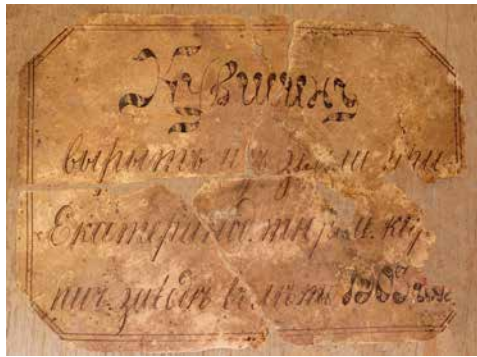 Кувшинъ
вырытъ изъ земли при
Екатеринб. тюрем. кир
пич. заводѣ въ лѣто 1905